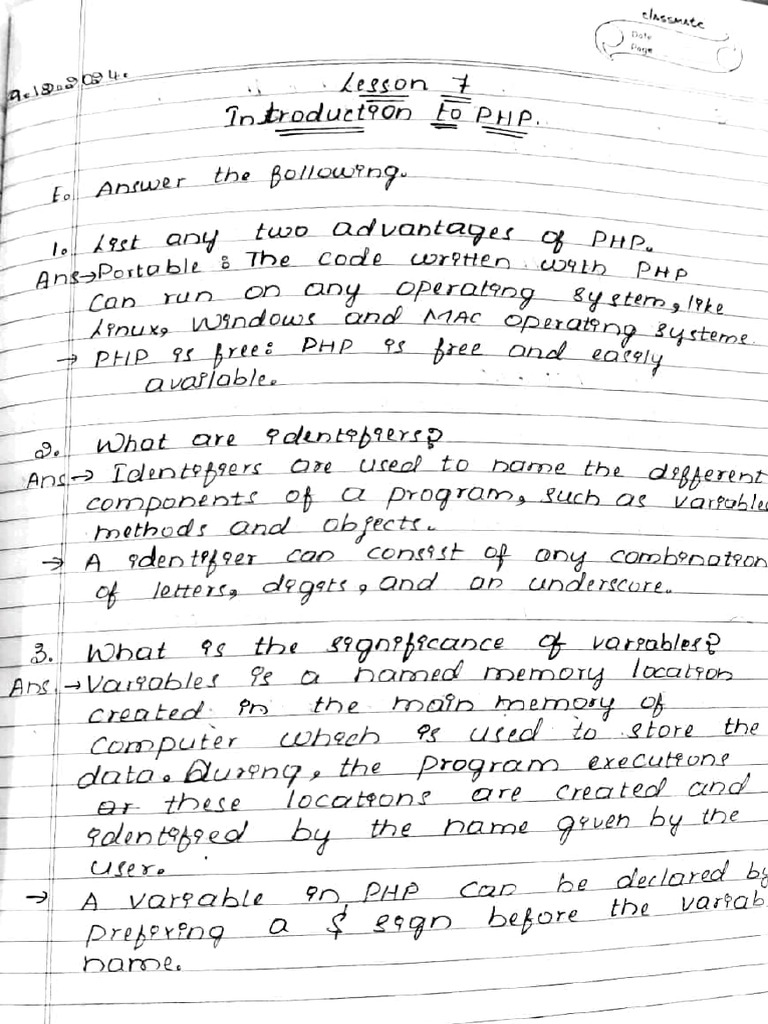 classmate
Date
Page
Lesson 7
Introduction to PHP.
E. Answer the following.
1. List any two advantages of PHP.
Ans→Portable : The code written with PHP
can run on any operating system, like
Linux, Windows and MAC operating systeme.
→ PHP is free: PHP is free and easily
available.
2. What are identifiers?
Ans→ Identifiers are used to name the different
components of a program, such as variables
methods and objects.
→ A identifier can consist of any combination
of letters, digits, and an underscore.
3. What is the significance of variables?
Ans.→Variables is a named memory location
created in the main memory of
computer which is used to store the
data. During, the program executions
or these locations are created and
identified by the name given by the
user.
→ A variable in PHP can be declared by
prefering a $ sign before the variab
name.